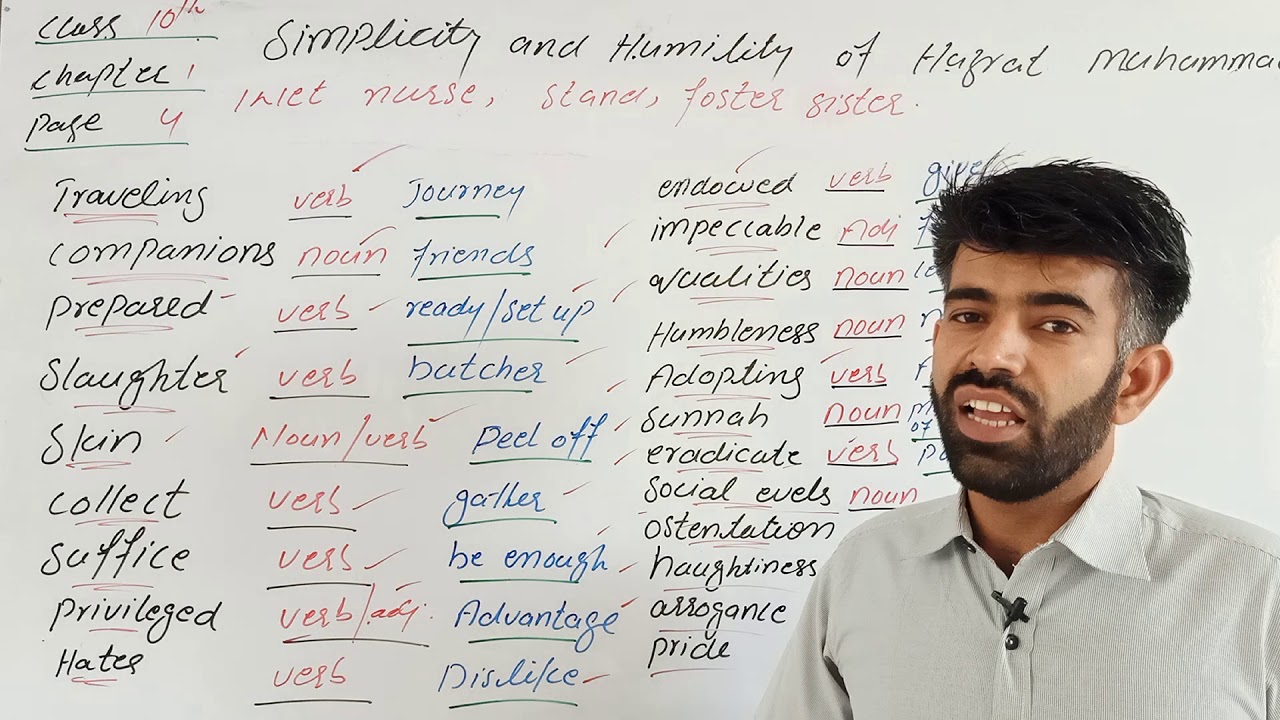 Class 10th
Chapter 1
Page 4
Simplicity and Humility of Hazrat Muhammad
Wet nurse, stand, foster sister.
Traveling verb Journey
Companions noun friends
Prepared verb ready/set up
Slaughter verb butcher
Skin Noun/verb Peel off
Collect verb gather
Suffice verb be enough
Privileged verb/adj. Advantage
Hates verb Dislike
endowed verb give
impeccable Adj
Qualities noun
Humbleness noun
Adopting verb
Sunnah noun
eradicate verb
Social evels noun
Ostentation
haughtiness
arrogance
Pride